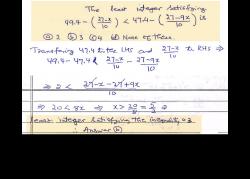 The least integer satisfying
49.4 - (27-x/10) < 47.4 - (27-9x/10) is
(a) 2 (b) 3 (c) 4 (d) None of these.
Transfering 47.4 to the LHS and 27-x/10 to RHS ⇒
49.4 - 47.4 < 27-x/10 - 27-9x/10
⇒ 2 < 27-x-27+9x/10
⇒ 20 < 8x ⇒ x >
least integer satisfying the inequality = 3
∴ Answer (b)